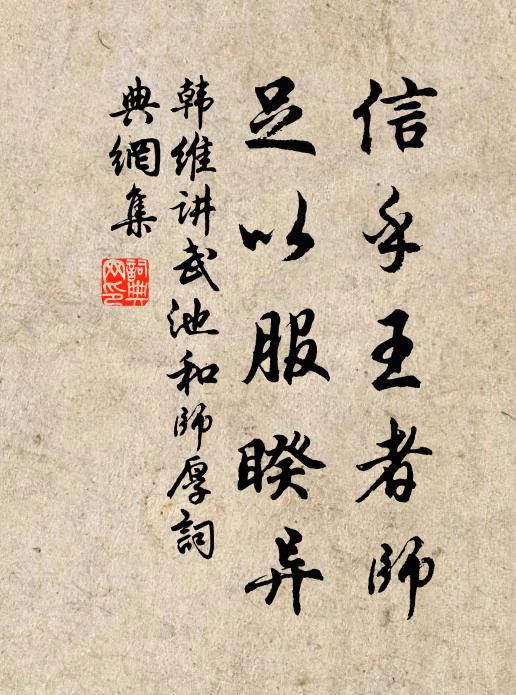 信乎王者师
足以服睽异
韩维讲武池和师厚詞
典網集
詞典
网印